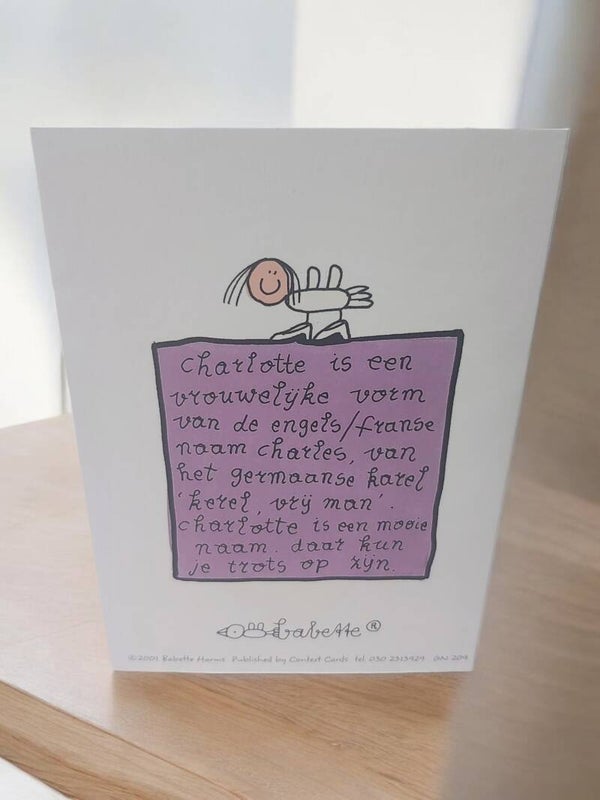 charlotte is een
vrouwelijke vorm
van de engels/franse
naam charles, van
het germaanse karel
'kerel, vrij man'.
charlotte is een mooie
naam. daar kun
je trots op zijn.
babette ®
©2001 Babette Harms Published by Context Cards tel. 030 2313929 GN 204